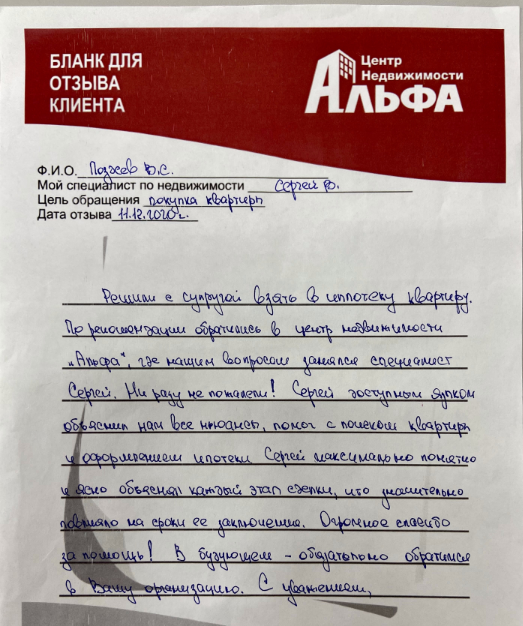 БЛАНК ДЛЯ
ОТЗЫВА
КЛИЕНТА
Центр
Недвижимости
АЛЬФА
Ф.И.О. Позгоев В.С.
Мой специалист по недвижимости Сергей Ю.
Цель обращения покупка квартиры
Дата отзыва 11.12.2020г.
Решили с супругой взять в ипотеку квартиру.
По рекомендации обратились в центр недвижимости
„Альфа", где нашим вопросом занялся специалист
Сергей. Ни разу не пожалели! Сергей доступным языком
объяснил нам все нюансы, помог с поиском квартиры
и оформлением ипотеки Сергей максимально понятно
и ясно объяснял каждый этап сделки, что значительно
повлияло на сроки ее заключения. Огромное спасибо
за помощь! В будующем - обязательно обратимся
в Вашу организацию. С уважением,